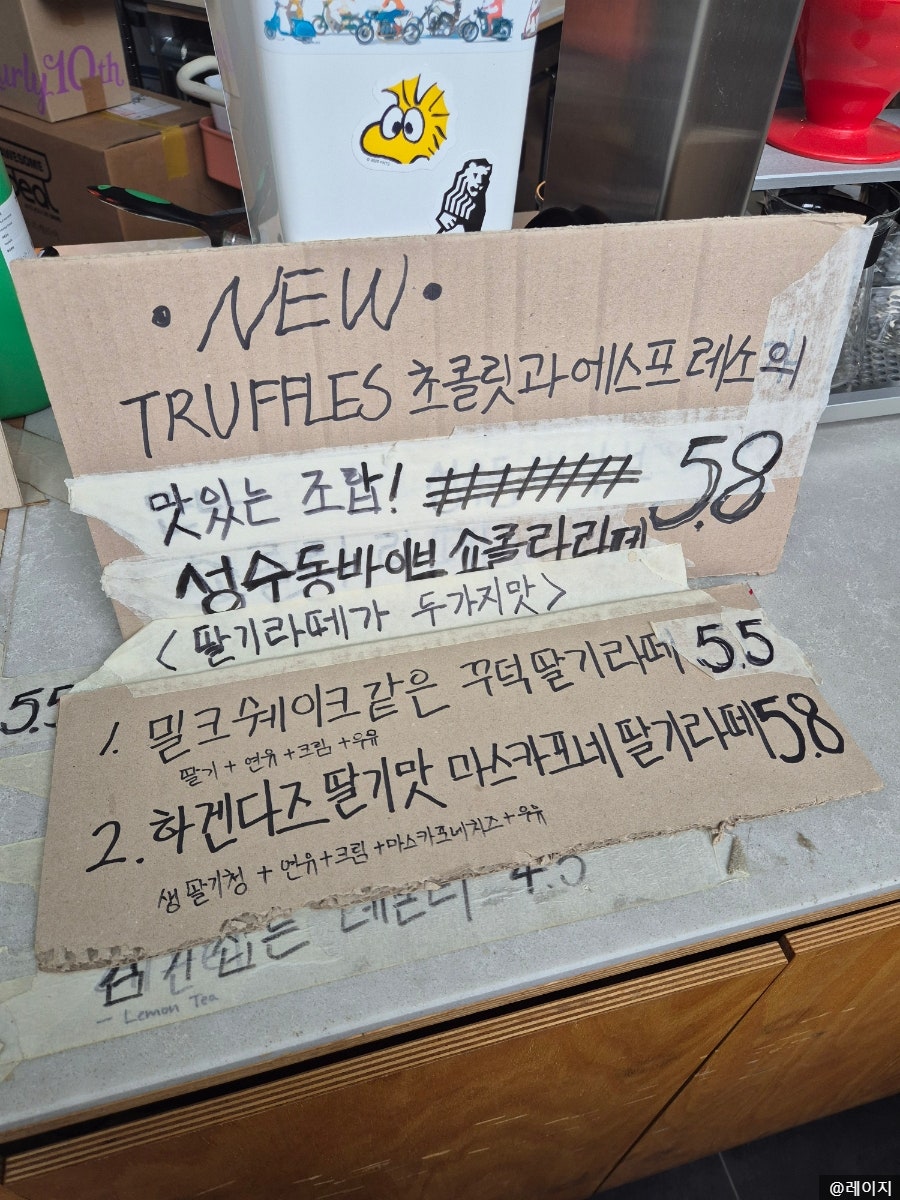 urly 10th
AWESOME
• NEW •
TRUFFLES 초콜릿과 에스프레소의
맛있는 조랍! 5.8
성수동바이브 쇼콜라라떼
<딸기라떼가 두가지맛>
1. 밀크쉐이크같은 꾸덕딸기라떼 5.5
딸기 + 연유 + 크림 + 우유
2. 하겐다즈딸기맛 마스카포네 딸기라떼 5.8
생딸기청 + 연유 + 크림 + 마스카포네치즈 + 우유
5.5
4.5
- Lemon Tea
@레이지